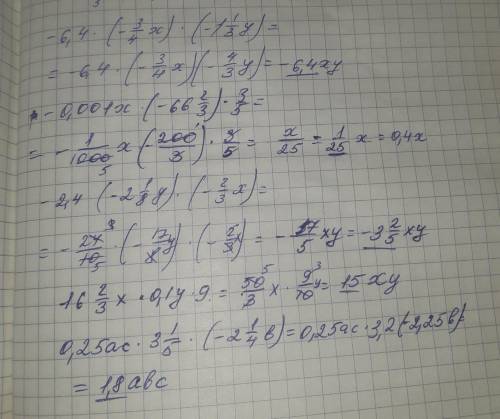 -6,4 · (-3/4 x) · (-1 1/3 y) =
= -6,4 · (-3/4 x)(-4/3 y) = -6,4xy
-0,001x · (-66 2/3) · 3/5 =
= -1/1000 x (-200/3) · 3/5 = x/25 = 1/25 x = 0,4x
-2,4 · (-2 1/8 y) · (-2/3 x) =
= -24/10 · (-17/8 y) · (-2/3 x) = -17/5 xy = -3 2/5 xy
16 2/3 x · 0,1y · 9 = 50/3 x · 9/10 y = 15xy
0,25ac · 3 1/5 · (-2 1/4 в) = 0,25ac · 3,2(-2,25в) =
= 1,8авс